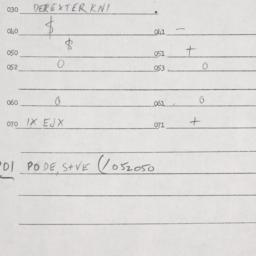 030 DEREXTERKNI .
040 $ 041 -
050 $ 051 +
052 0 053 0
060 0 061 0
070 IX EJX 071 +
01 PODE, S+VE (/052050